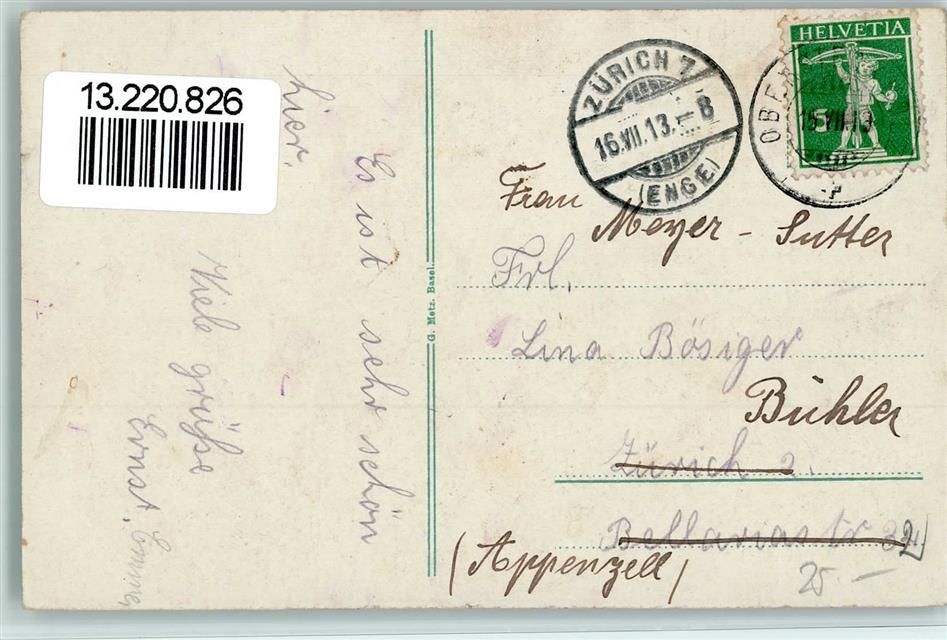 13.220.826
Es ist sehr schön
hier.
Viele grüße
Ernst, Emma,
G. Metz. Basel.
ZÜRICH 7
16.VII.13.-8
(ENGE)
HELVETIA
5
15.VII.13
Frau
Meyer - Sutter
Frl.
Lina Bösiger
Bühler
Zürich 2.
Bellariastr
(Appenzell)
25 -